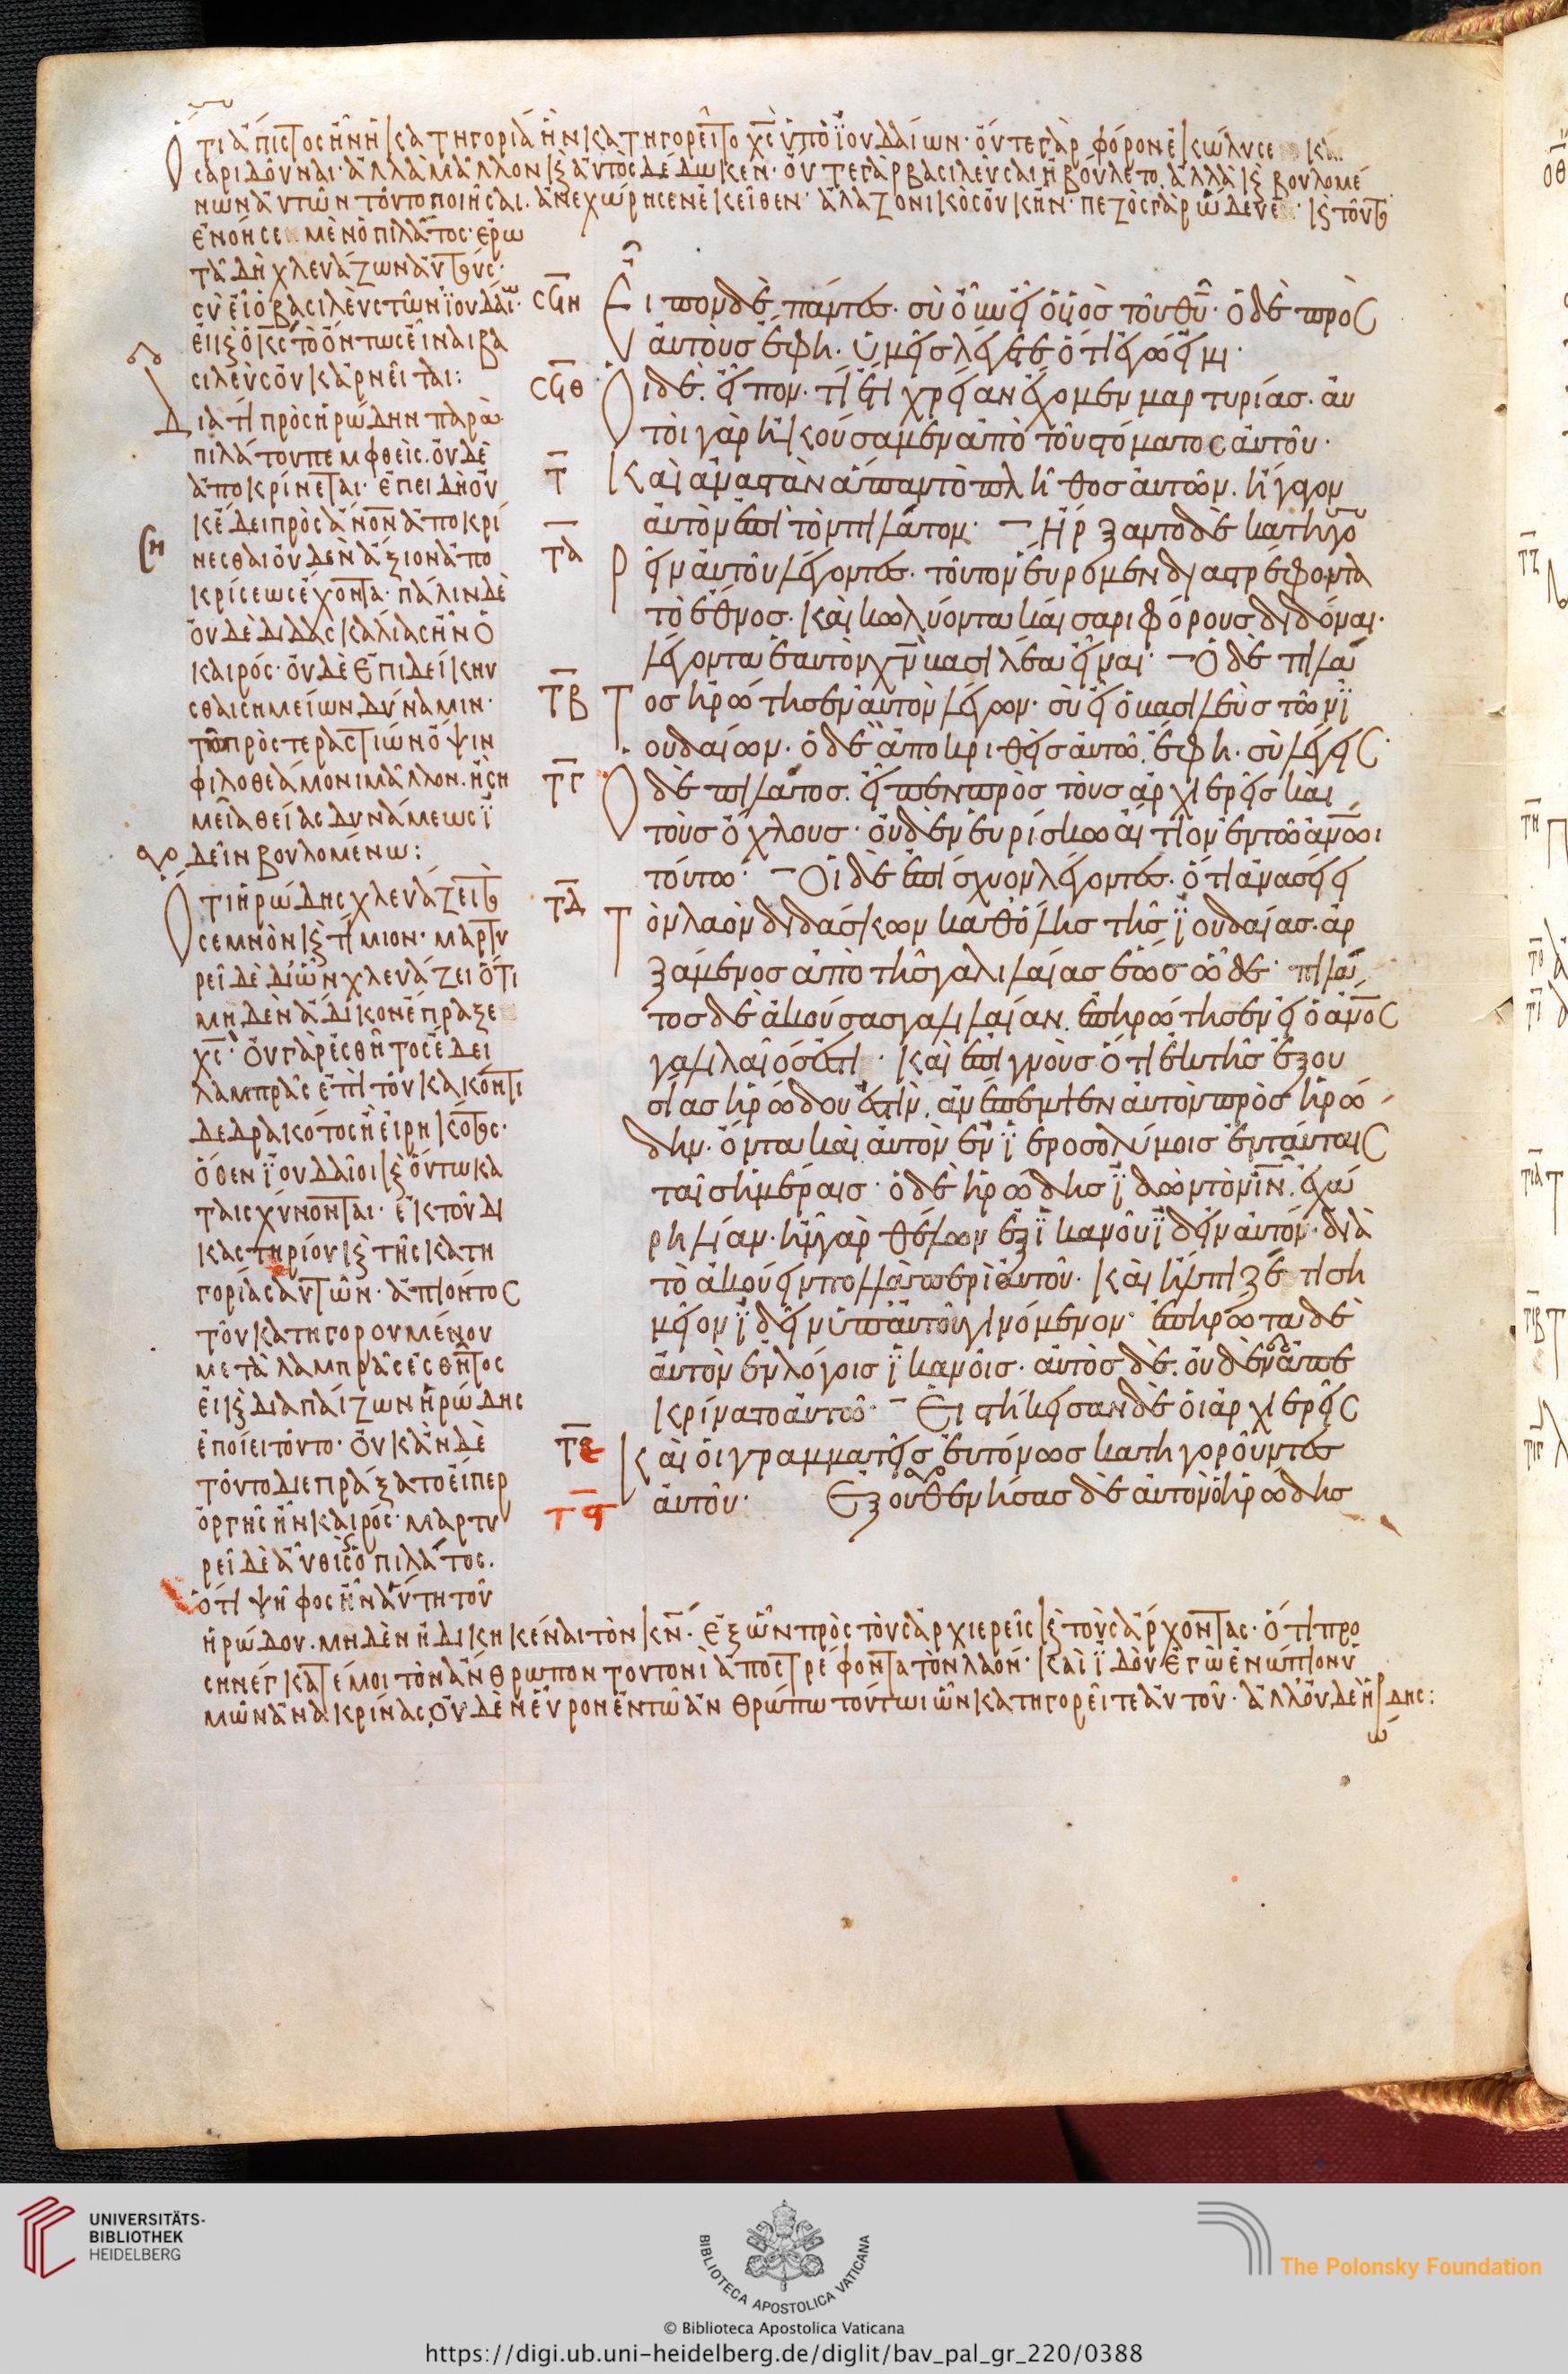 Ὅτι ἄπιστος ἦν ἡ κατηγορία ἣν κατηγορεῖτο χς ὑπὸ ϊουδαίων· οὔτε γὰρ φόρον ἐκώλυσε και
σαρι δοῦναι· ἀλλὰ μᾶλλον κ αὐτὸς δέδωκεν· οὔτε γὰρ βασιλεῦσαι ἠβούλετο, ἀλλὰ κ βουλομέ
νων αὐτῶν τοῦτο ποιῆσαι. ἀνεχώρησεν ἐκεῖθεν· ἀλαζονικὸς οὐκ ἦν· πεζὸς γὰρ ὥδευε· κ τοῦτο
ἐνόησε μὲν ὁ πιλάτος· ἐρω
τᾶ δὴ χλευάζων αὐτούς·
σὺ εἶ ὁ βασιλεὺς τῶν ϊουδαίων·
εἰ κ ὁ κς τὸ ὄντως εἶναι βα
σιλεὺς οὐκ ἀρνεῖται:
Διατί πρὸς ἡρώδην παρὰ
πιλάτου πεμφθεὶς. οὐδὲ
ἀποκρίνεται· ἐπειδὴ οὐ
κ ἔδει πρὸς ἄνον ἀποκρί
νεσθαι οὐδὲν ἄξιον ἀπο
κρίσεως ἔχοντα· πάλιν δὲ
οὐδὲ διδασκαλίας ἦν ὁ
καιρός· οὐδὲ ἐπιδείκνυ
σθαι σημείων δύναμιν·
τῶ πρὸς τεραστίων ὄψιν
φιλοθεάμονι μᾶλλον. ἢ ση
μεῖα θείας δυνάμεως ϊ
δεῖν βουλομένω:
Ὅτι ἡρώδης χλευάζει το
σεμνὸν κ τίμιον· μαρτυ
ρεῖ δὲ δι ὧν χλευάζει ὅτι
μηδὲν ἄδικον ἔπραξε
χς· οὐ γὰρ ἐσθῆτος ἔδει
λαμπρᾶς ἐπὶ τοῦ κακόν τι
δεδρακότος ἢ εἰρηκότος·
ὅθεν ϊουδαῖοι κ οὕτω κα
ταισχύνονται· ἐκ τοῦ δι
καστηρίου κ τῆς κατη
γορίας αὐτῶν· ἀπιόντος
τοῦ κατηγορουμένου
μετὰ λαμπρᾶς ἐσθῆτος
εἰ κ διαπαίζων ἡρώδης
ἐποίει τοῦτο· οὐκ ἂν δὲ
τοῦτο διεπράξατο εἴπερ
ὀργῆς ἦν καιρός· μαρτυ
ρεῖ δὲ αὖθις ὁ πιλάτος.
ὅτι ψῆφος ἦν αὕτη τοῦ
σϟη Εἶπον δὲ πάντες· σὺ οὖν εἶ ὁ υϊὸς τοῦ θυ· ὁ δὲ πρὸς
αὐτοὺς ἔφη· ὑμεῖς λέγετε ὅτι ἐγώ εἰμι·
σϟθ Οἱ δὲ. εἶπον· τί ἔτι χρείαν ἔχομεν μαρτυρίας· αὐ
τοὶ γὰρ ἠκούσαμεν ἀπὸ τοῦ στόματος αὐτοῦ·
τ Καὶ ἀναστὰν ἅπαν τὸ πλῆθος αὐτῶν. ἤγαγον
αὐτὸν ἐπὶ τὸν πιλάτον· Ἤρξαντο δὲ κατηγο
τα ρεῖν αὐτοῦ λέγοντες· τοῦτον εὕρομεν διαστρέφοντα
τὸ ἔθνος· καὶ κωλύοντα καίσαρι φόρους διδόναι·
λέγοντα ἑαυτὸν χν βασιλέα εἶναι· Ὁ δὲ πιλά
τβ τος ἠρώτησεν αὐτὸν λέγων· σὺ εἶ ὁ βασιλεὺς τῶν ϊ
ουδαίων· ὁ δὲ ἀποκριθεὶς αὐτῶ. ἔφη· σὺ λέγεις·
τγ Ὁ δὲ πιλάτος. εἶπεν πρὸς τοὺς ἀρχιερεῖς καὶ
τοὺς ὄχλους· οὐδὲν εὑρίσκω αἴτιον ἐν τῶ ἀνωι
τούτω· Οἱ δὲ ἐπίσχυον λέγοντες· ὅτι ἀνασείει
τδ Τὸν λαὸν διδάσκων καθόλης τῆς ϊουδαίας· ἀρ
ξάμενος ἀπὸ τῆς γαλιλαίας ἕως ὧδε· πιλά
τος δὲ ἀκούσας γαλιλαίαν. ἐπηρώτησεν εἰ ὁ ἀνος
γαλιλαῖός ἐστι· καὶ ἐπιγνοὺς ὅτι ἐκ τῆς ἐξου
σίας ἡρώδου ἐστὶν. ἀνέπεμψεν αὐτὸν πρὸς ἡρώ
δην· ὄντα καὶ αὐτὸν ἐν ϊεροσολύμοις ἐν ταύταις
ταῖς ἡμέραις· ὁ δὲ ἡρώδης ϊδὼν τὸν ιν. ἐχά
ρη λίαν· ἦν γὰρ θέλων ἐξ ϊκανοῦ ϊδεῖν αὐτόν· διὰ
τὸ ἀκούειν πολλὰ περὶ αὐτοῦ· καὶ ἤλπιζέ τι ση
μεῖον ϊδεῖν ὑπ αὐτοῦ γινόμενον· ἐπηρώτα δὲ
αὐτὸν ἐν λόγοις ϊκανοῖς· αὐτὸς δὲ. οὐδὲν ἀπε
κρίνατο αὐτῶ· Εἱστήκεισαν δὲ οἱ ἀρχιερεῖς
τε καὶ οἱ γραμματεῖς εὐτόνως κατηγοροῦντες
τϛ αὐτοῦ· Ἐξουθενήσας δὲ αὐτὸν ὁ ἡρώδης
ἡρώδου. μηδὲν ἠδικηκέναι τὸν κν· ἐξ ὧν πρὸς τοὺς ἀρχιερεῖς κ τοὺς ἄρχοντας· ὅτι προ
σηνέγκατέ μοι τὸν ἄνθρωπον τουτονὶ ἀποστρέφοντα τὸν λαόν· καὶ ϊδοὺ ἐγὼ ἐνώπιον ὑ
μῶν ἀνακρίνας, οὐδὲν εὗρον ἐν τῶ ἀνθρώπω τούτωι ὧν κατηγορεῖτε αὐτοῦ· ἀλλ οὐδὲ ἡρώδης:
UNIVERSITÄTS-
BIBLIOTHEK
HEIDELBERG
BIBLIOTECA APOSTOLICA VATICANA
© Biblioteca Apostolica Vaticana
The Polonsky Foundation
https://digi.ub.uni-heidelberg.de/diglit/bav_pal_gr_220/0388